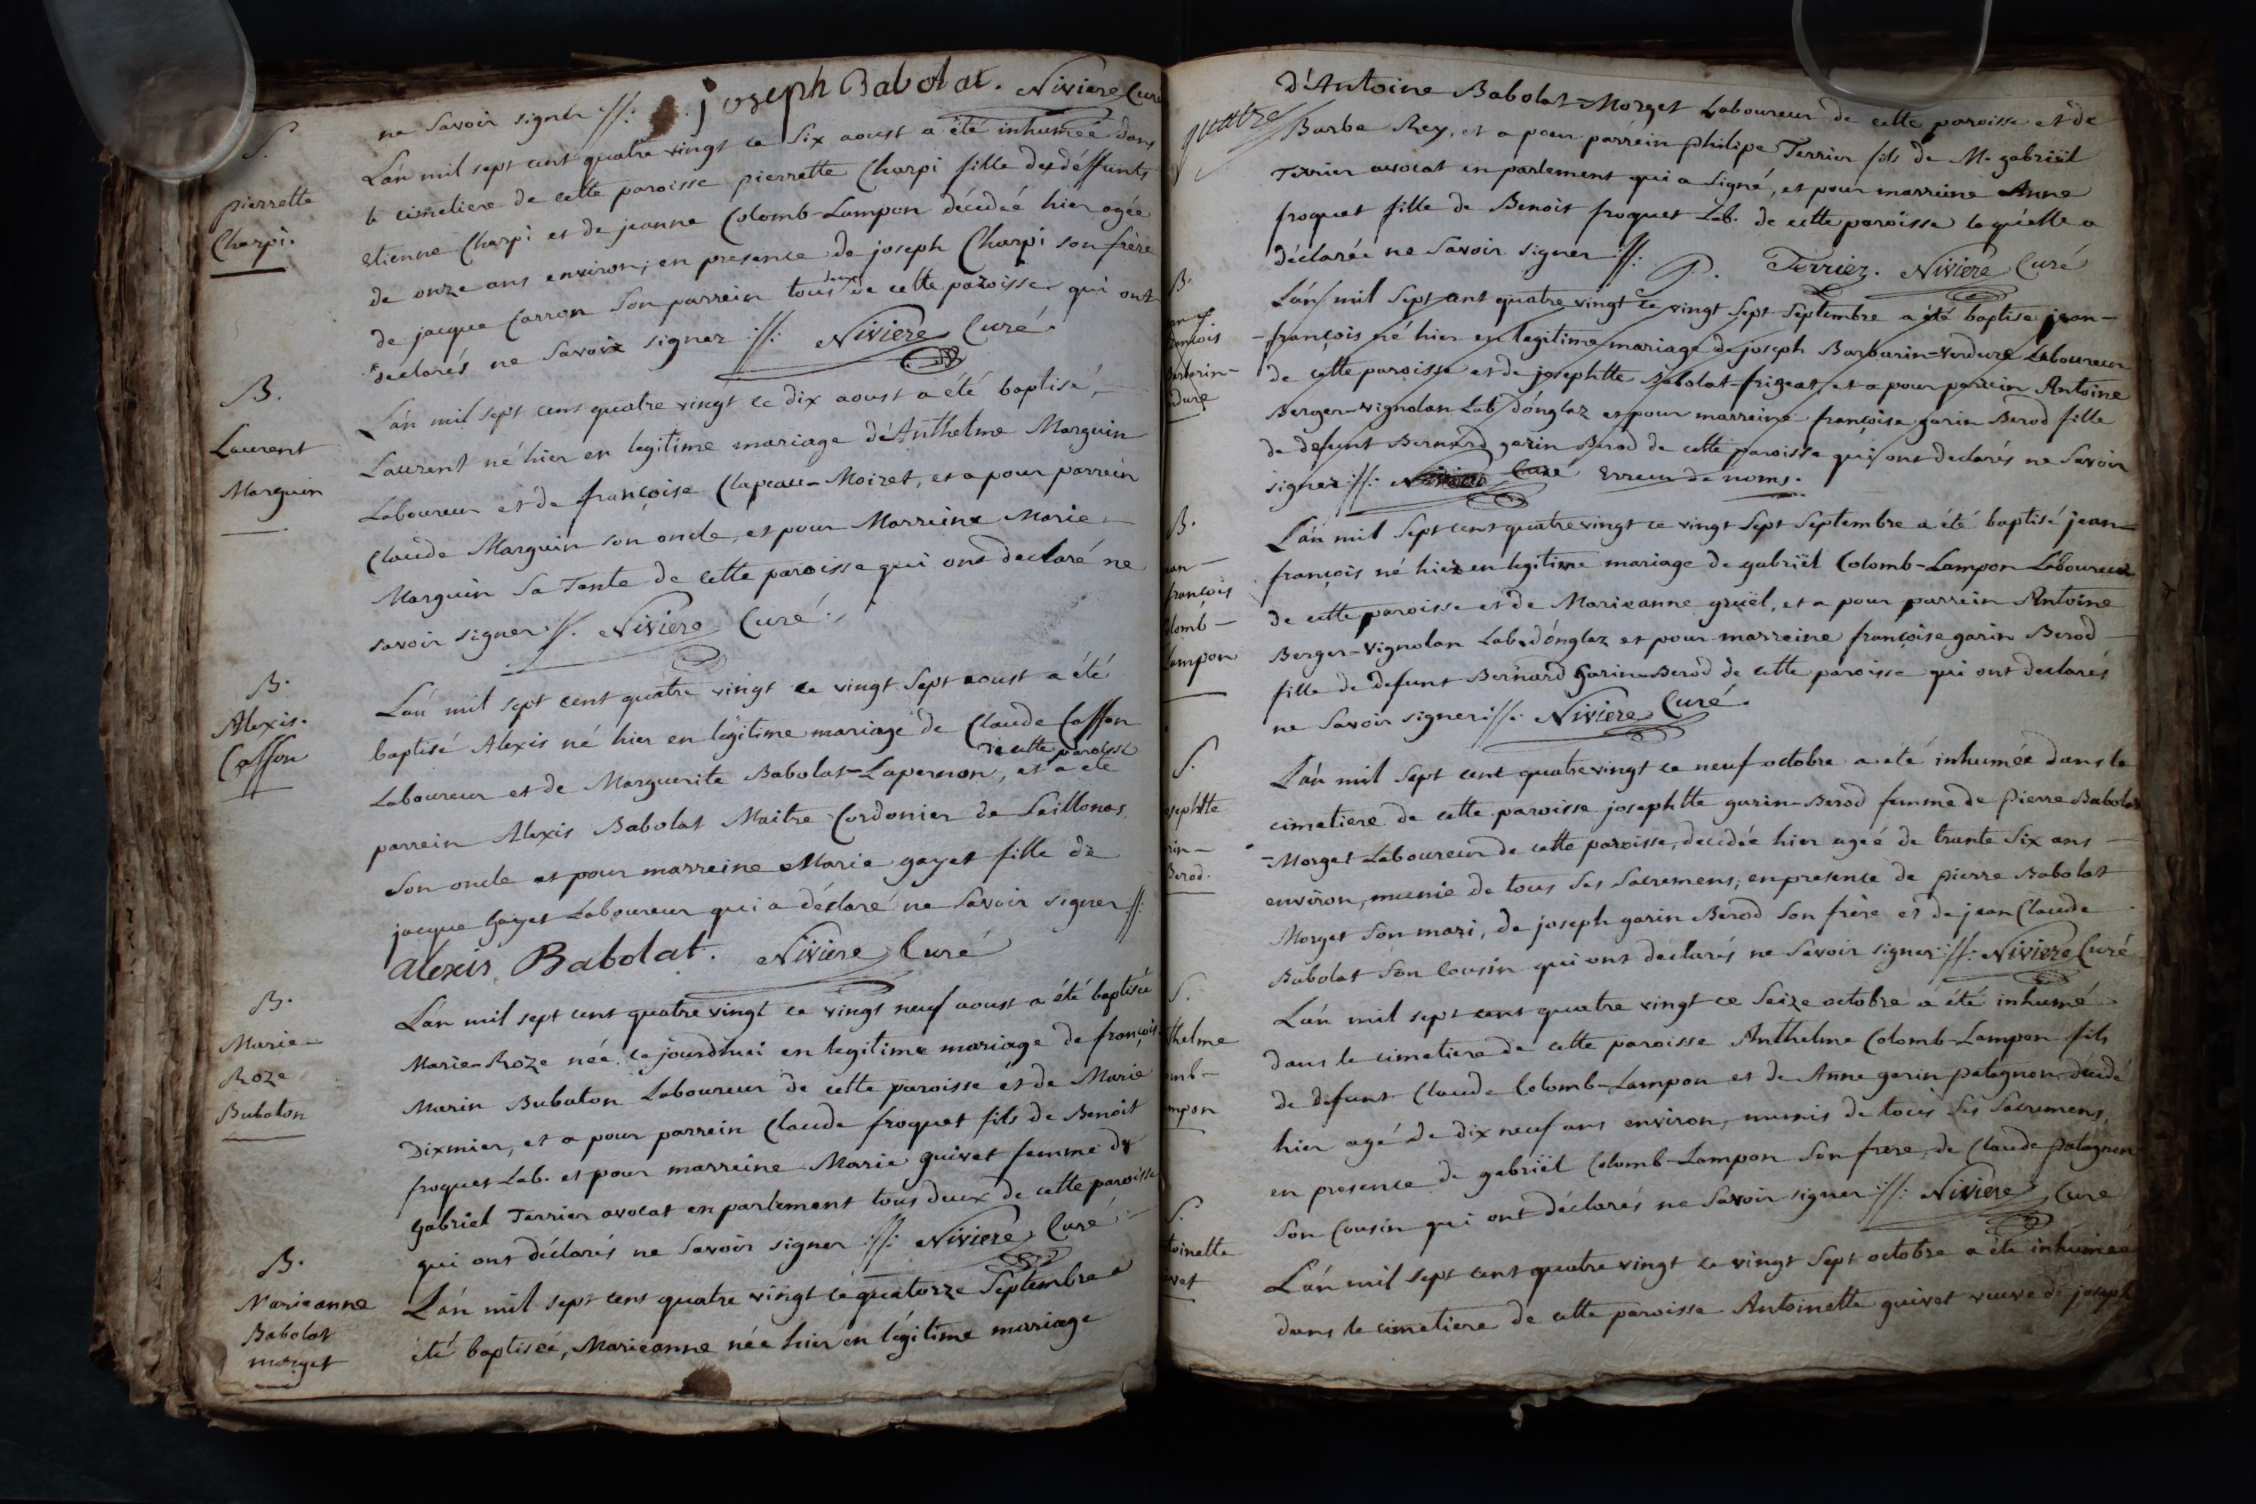 ne Savoir signer :||: joseph Babolat. Niviere Curé
S.
pierrette
Charpi.
L'an mil sept cent quatre vingt ce Six aoust a été inhumée dans
le cimetiere de cette paroisse pierrette Charpi fille des déffunts
Etienne Charpi et de jeanne Colomb-Lampon décédée hier agée
de onze ans environ; en presence de joseph Charpi son frère
de jacque Carron Son parrein tous deux de cette paroisse qui ont
declarés ne Savoir signer :||: Niviere Curé.
B.
Laurent
Marguin
L'an mil sept cent quatre vingt ce dix aoust a été baptisé,
Laurent né hier en legitime mariage d'Anthelme Marguin
Laboureur et de françoise Clapeau-Moiret, et a pour parrein
Claude Marguin son oncle, et pour Marreine Marie
Marguin Sa Tante de cette paroisse qui ont declaré ne
savoir signer :||: Niviere Curé.
B.
Alexis.
Caffon
L'an mil sept cent quatre vingt ce vingt Sept aoust a été
baptisé Alexis né hier en legitime mariage de Claude Caffon
Laboureur de cette paroisse et de Marguerite Babolat-Laperron, et a été
parrein Alexis Babolat Maitre Cordonier de Seillonas
Son oncle et pour marreine Marie gayet fille de
jacque gayet Laboureur qui a déclaré ne Savoir signer :||:
alexis Babolat. Niviere Curé
B.
Marie-
Roze
Bubaton
L'an mil sept cent quatre vingt ce vingt neuf aoust a été baptisée
Marie-Roze née ce jourd'hui en legitime mariage de françois
Marin Bubaton Laboureur de cette paroisse et de Marie
Dixmier, et a pour parrein Claude froquet fils de Benoit
froquet Lab. et pour marreine Marie guivet femme de
gabriel Terrier avocat en parlement tous deux de cette paroisse
qui ont déclarés ne Savoir signer :||: Niviere Curé
B.
Marieanne
Babolat
morget
L'an mil sept cent quatre vingt ce quatorze Septembre a
été baptisée, Marieanne née hier en légitime mariage
quatre
d'Antoine Babolat-Morget Laboureur de cette paroisse et de
Barbe Rey, et a pour parrein philipe Terrier fils de Mr gabriël
Terrier avocat en parlement qui a Signé, et pour marreine Anne
froquet fille de Benoit froquet Lab. de cette paroisse laquelle a
déclarée ne Savoir signer :||: P. Terrier. Niviere Curé
B.
L'an mil Sept cent quatre vingt ce vingt Sept Septembre a été baptisé jean-
françois né hier en legitime mariage de joseph Barbarin-Verdure Laboureur
de cette paroisse et de josephtte Babolat-frigeat, et a pour parrein Antoine
Berger-Vignolan Lab. d'onglaz et pour marreine françoise garin Berod fille
de defunt Bernard garin Berod de cette paroisse qui ont declarés ne Savoir
signer :||: Niviere Curé Erreur de noms.
B.
françois
L'an mil Sept cent quatre vingt ce vingt Sept Septembre a été baptisé jean-
françois né hier en legitime mariage de gabriël Colomb-Lampon Laboureur
de cette paroisse et de Marieanne gruël, et a pour parrein Antoine
Berger-Vignolan Lab. d'onglaz et pour marreine françoise garin Berod
fille de defunt Bernard Garin-Berod de cette paroisse qui ont declarés
ne Savoir signer :||: Niviere Curé.
S.
L'an mil Sept cent quatre vingt ce neuf octobre a été inhumée dans le
cimetiere de cette paroisse josephtte garin-Berod femme de Pierre Babolat
-Morget Laboureur de cette paroisse, decédée hier ageé de trente Six ans
environ, munie de tous Ses Sacremens; en presence de pierre Babolat
Morget Son mari, de joseph garin Berod Son frère et de jean Claude
Babolat Son Cousin qui ont declarés ne Savoir signer :||: Niviere Curé
S.
L'an mil sept cent quatre vingt ce Seize octobre a été inhumé
dans le cimetiere de cette paroisse Anthelme Colomb-Lampon fils
de defunt Claude Colomb-Lampon et de Anne garin-palagnon décédé
hier agé de dix neuf ans environ, munis de tous Ses Sacremens,
en presence de gabriël Colomb-Lampon Son frere, de Claude palagnon
Son Cousin qui ont déclarés ne Savoir signer :||: Niviere Curé
S.
L'an mil sept cent quatre vingt ce vingt Sept octobre a été inhumée
dans le cimetiere de cette paroisse Antoinette guivet veuve de joseph